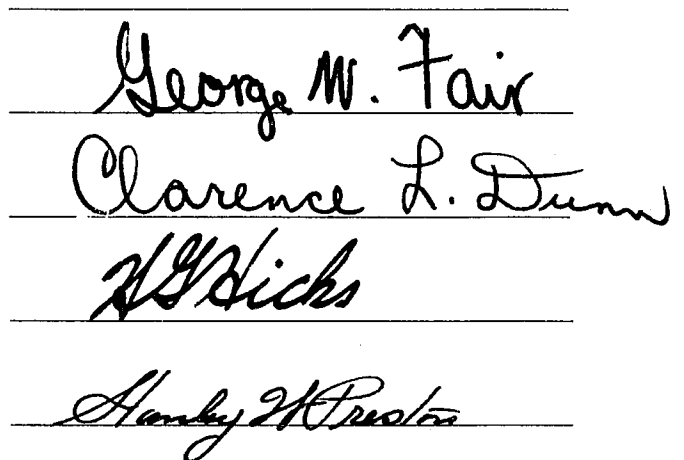 George W. Fair
Clarence L. Dunn
H G Hicks
Stanley W Preston